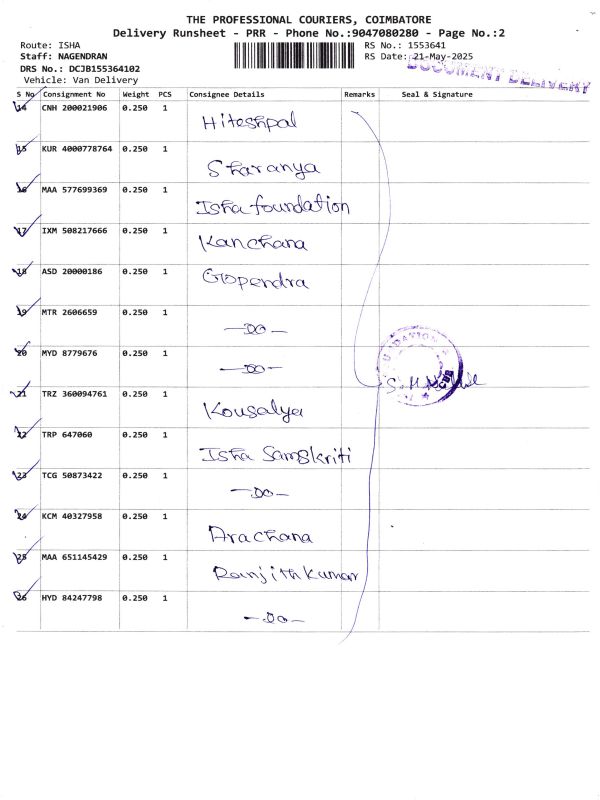 THE PROFESSIONAL COURIERS, COIMBATORE
Delivery Runsheet - PRR - Phone No.:9047080280 - Page No.:2
Route: ISHA RS No.: 1553641
Staff: NAGENDRAN RS Date: 21-May-2025
DOCUMENT DELIVERY
DRS No.: DCJB155364102
Vehicle: Van Delivery
S No Consignment No Weight PCS Consignee Details Remarks Seal & Signature
14 CNH 200021906 0.250 1 Hiteshpal
15 KUR 4000778764 0.250 1 Sharanya
16 MAA 577699369 0.250 1 Isha foundation
17 IXM 508217666 0.250 1 Kanchana
18 ASD 20000186 0.250 1 Gopendra
19 MTR 2606659 0.250 1 —Do—
20 MYD 8779676 0.250 1 —Do—
21 TRZ 360094761 0.250 1 Kousalya
22 TRP 647060 0.250 1 Isha Samskriti
23 TCG 50873422 0.250 1 —Do—
24 KCM 40327958 0.250 1 Arachana
25 MAA 651145429 0.250 1 Ranjithkumar
26 HYD 84247798 0.250 1 —Do—